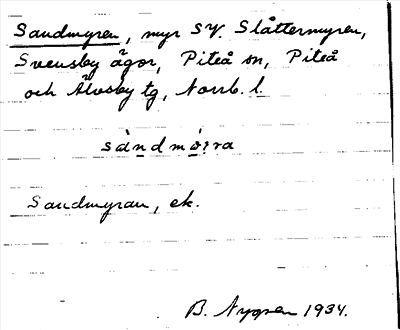 Sandmyren, myr SV. Slåttermyren,
Svensby ägor, Piteå sn, Piteå
och Älvsby tg, Norrb. l.
sàndmỳra
Sandmyran, ek.
B. Nygren 1934.